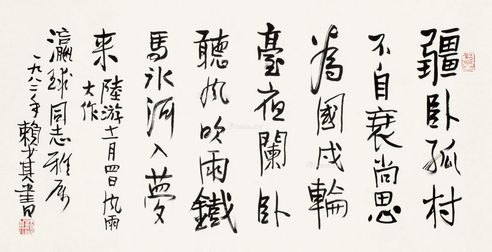 疆卧孤村
不自衰尚思
為國戍輪
臺夜闌卧
聽風吹雨鐵
馬冰河入夢
來 陸游十一月四日風雨
大作
瀛球同志雅属
一九八二年賴少其書